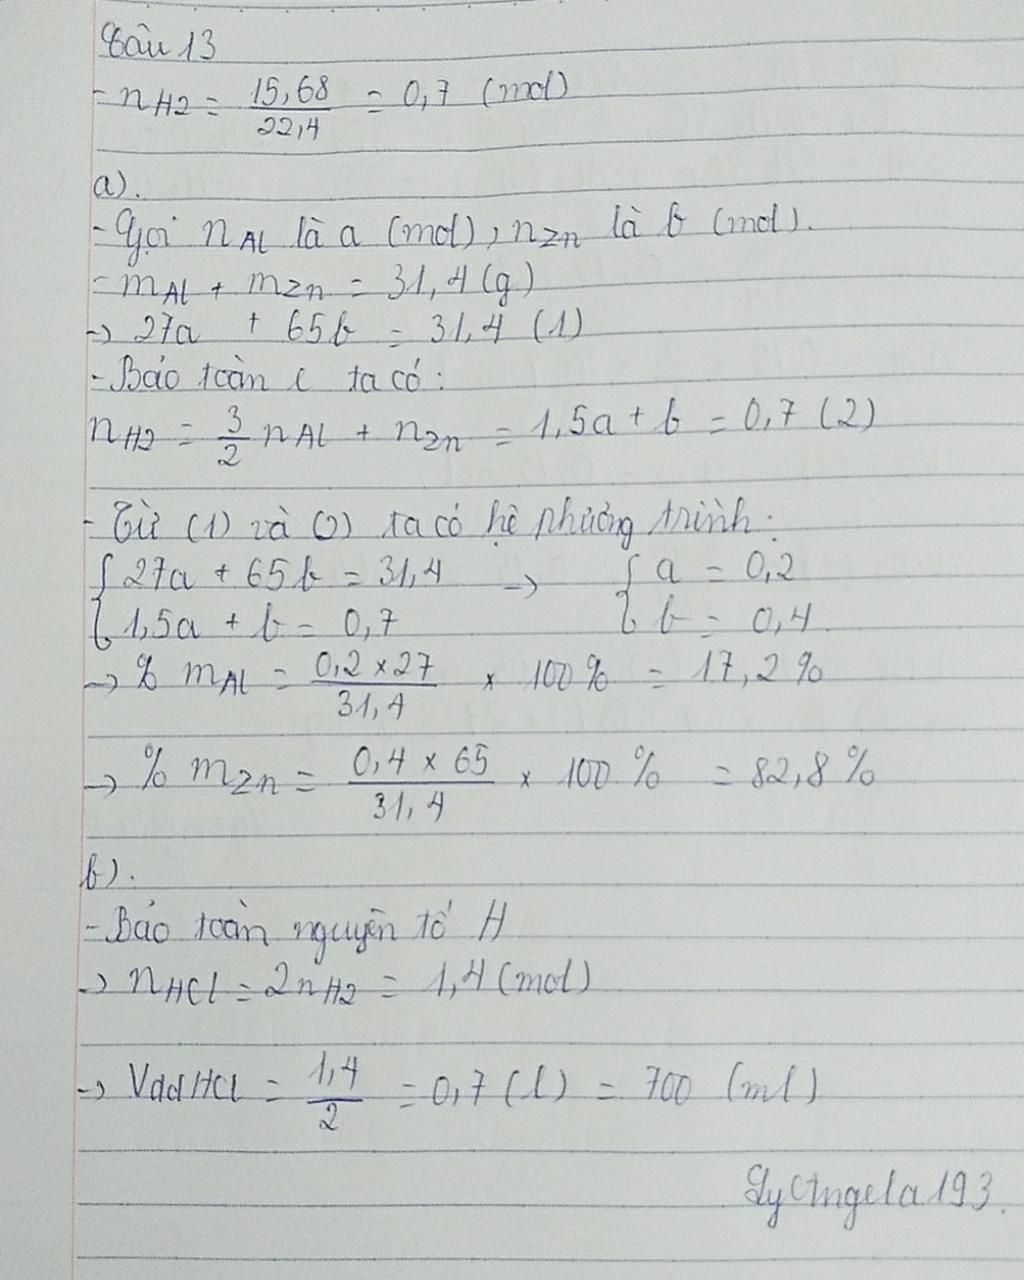 Câu 13
- nH2 = 15,68/22,4 = 0,7 (mol)
a).
- Gọi nAl là a (mol), nZn là b (mol).
- mAl + mZn = 31,4 (g)
→ 27a + 65b = 31,4 (1)
- Bảo toàn e ta có:
nH2 = 3/2 nAl + nZn = 1,5a + b = 0,7 (2)
- Từ (1) và (2) ta có hệ phương trình:
{ 27a + 65b = 31,4 → { a = 0,2
{ 1,5a + b = 0,7 { b = 0,4
→ % mAl = 0,2 × 27/31,4 × 100 % = 17,2 %
→ % mZn = 0,4 × 65/31,4 × 100 % = 82,8 %
b).
- Bảo toàn nguyên tố H
→ nHCl = 2nH2 = 1,4 (mol)
→ VddHCl = 1,4/2 = 0,7 (l) = 700 (ml)
LyAngela193.